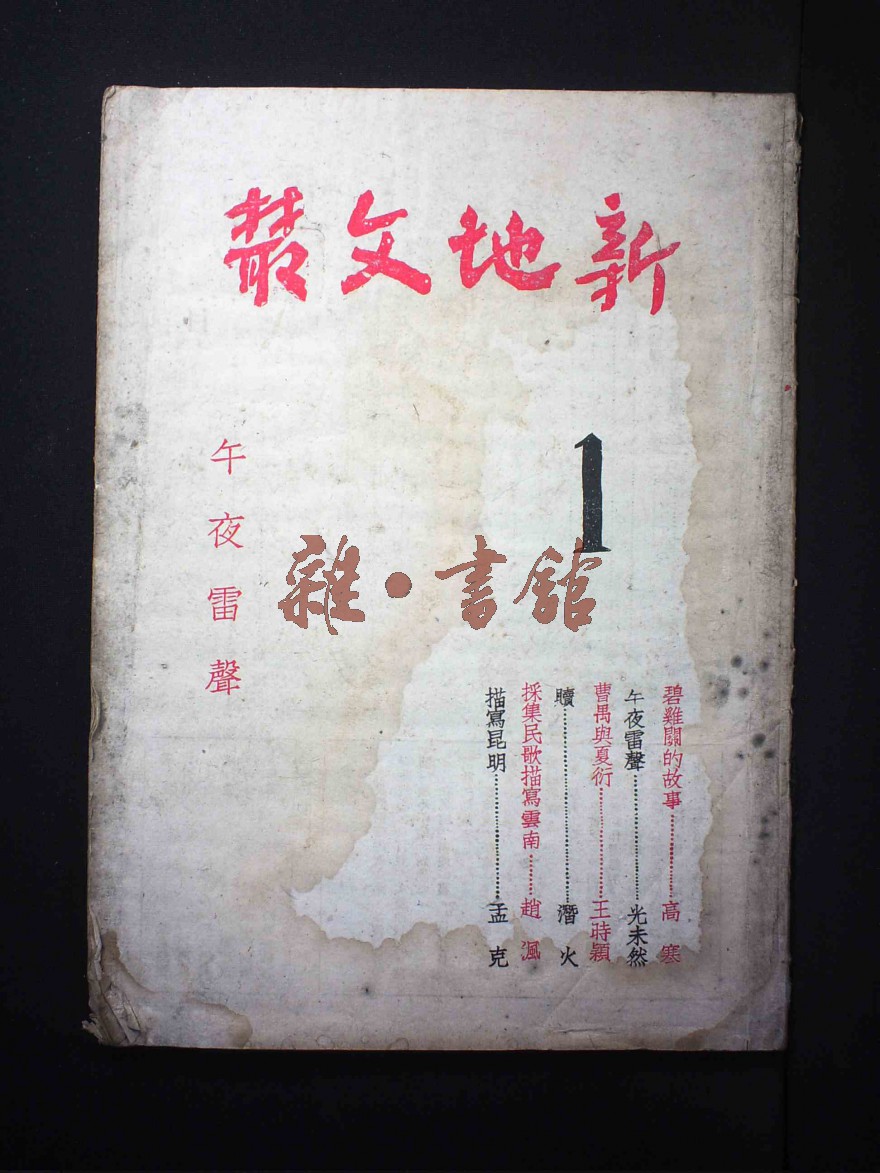 新地文叢
1
碧雞關的故事………高寒
午夜雷聲………光未然
曹禺與夏衍………王時穎
贖………潛火
採集民歌描寫雲南………趙渢
描寫昆明………孟克
午夜雷聲
雜·書館